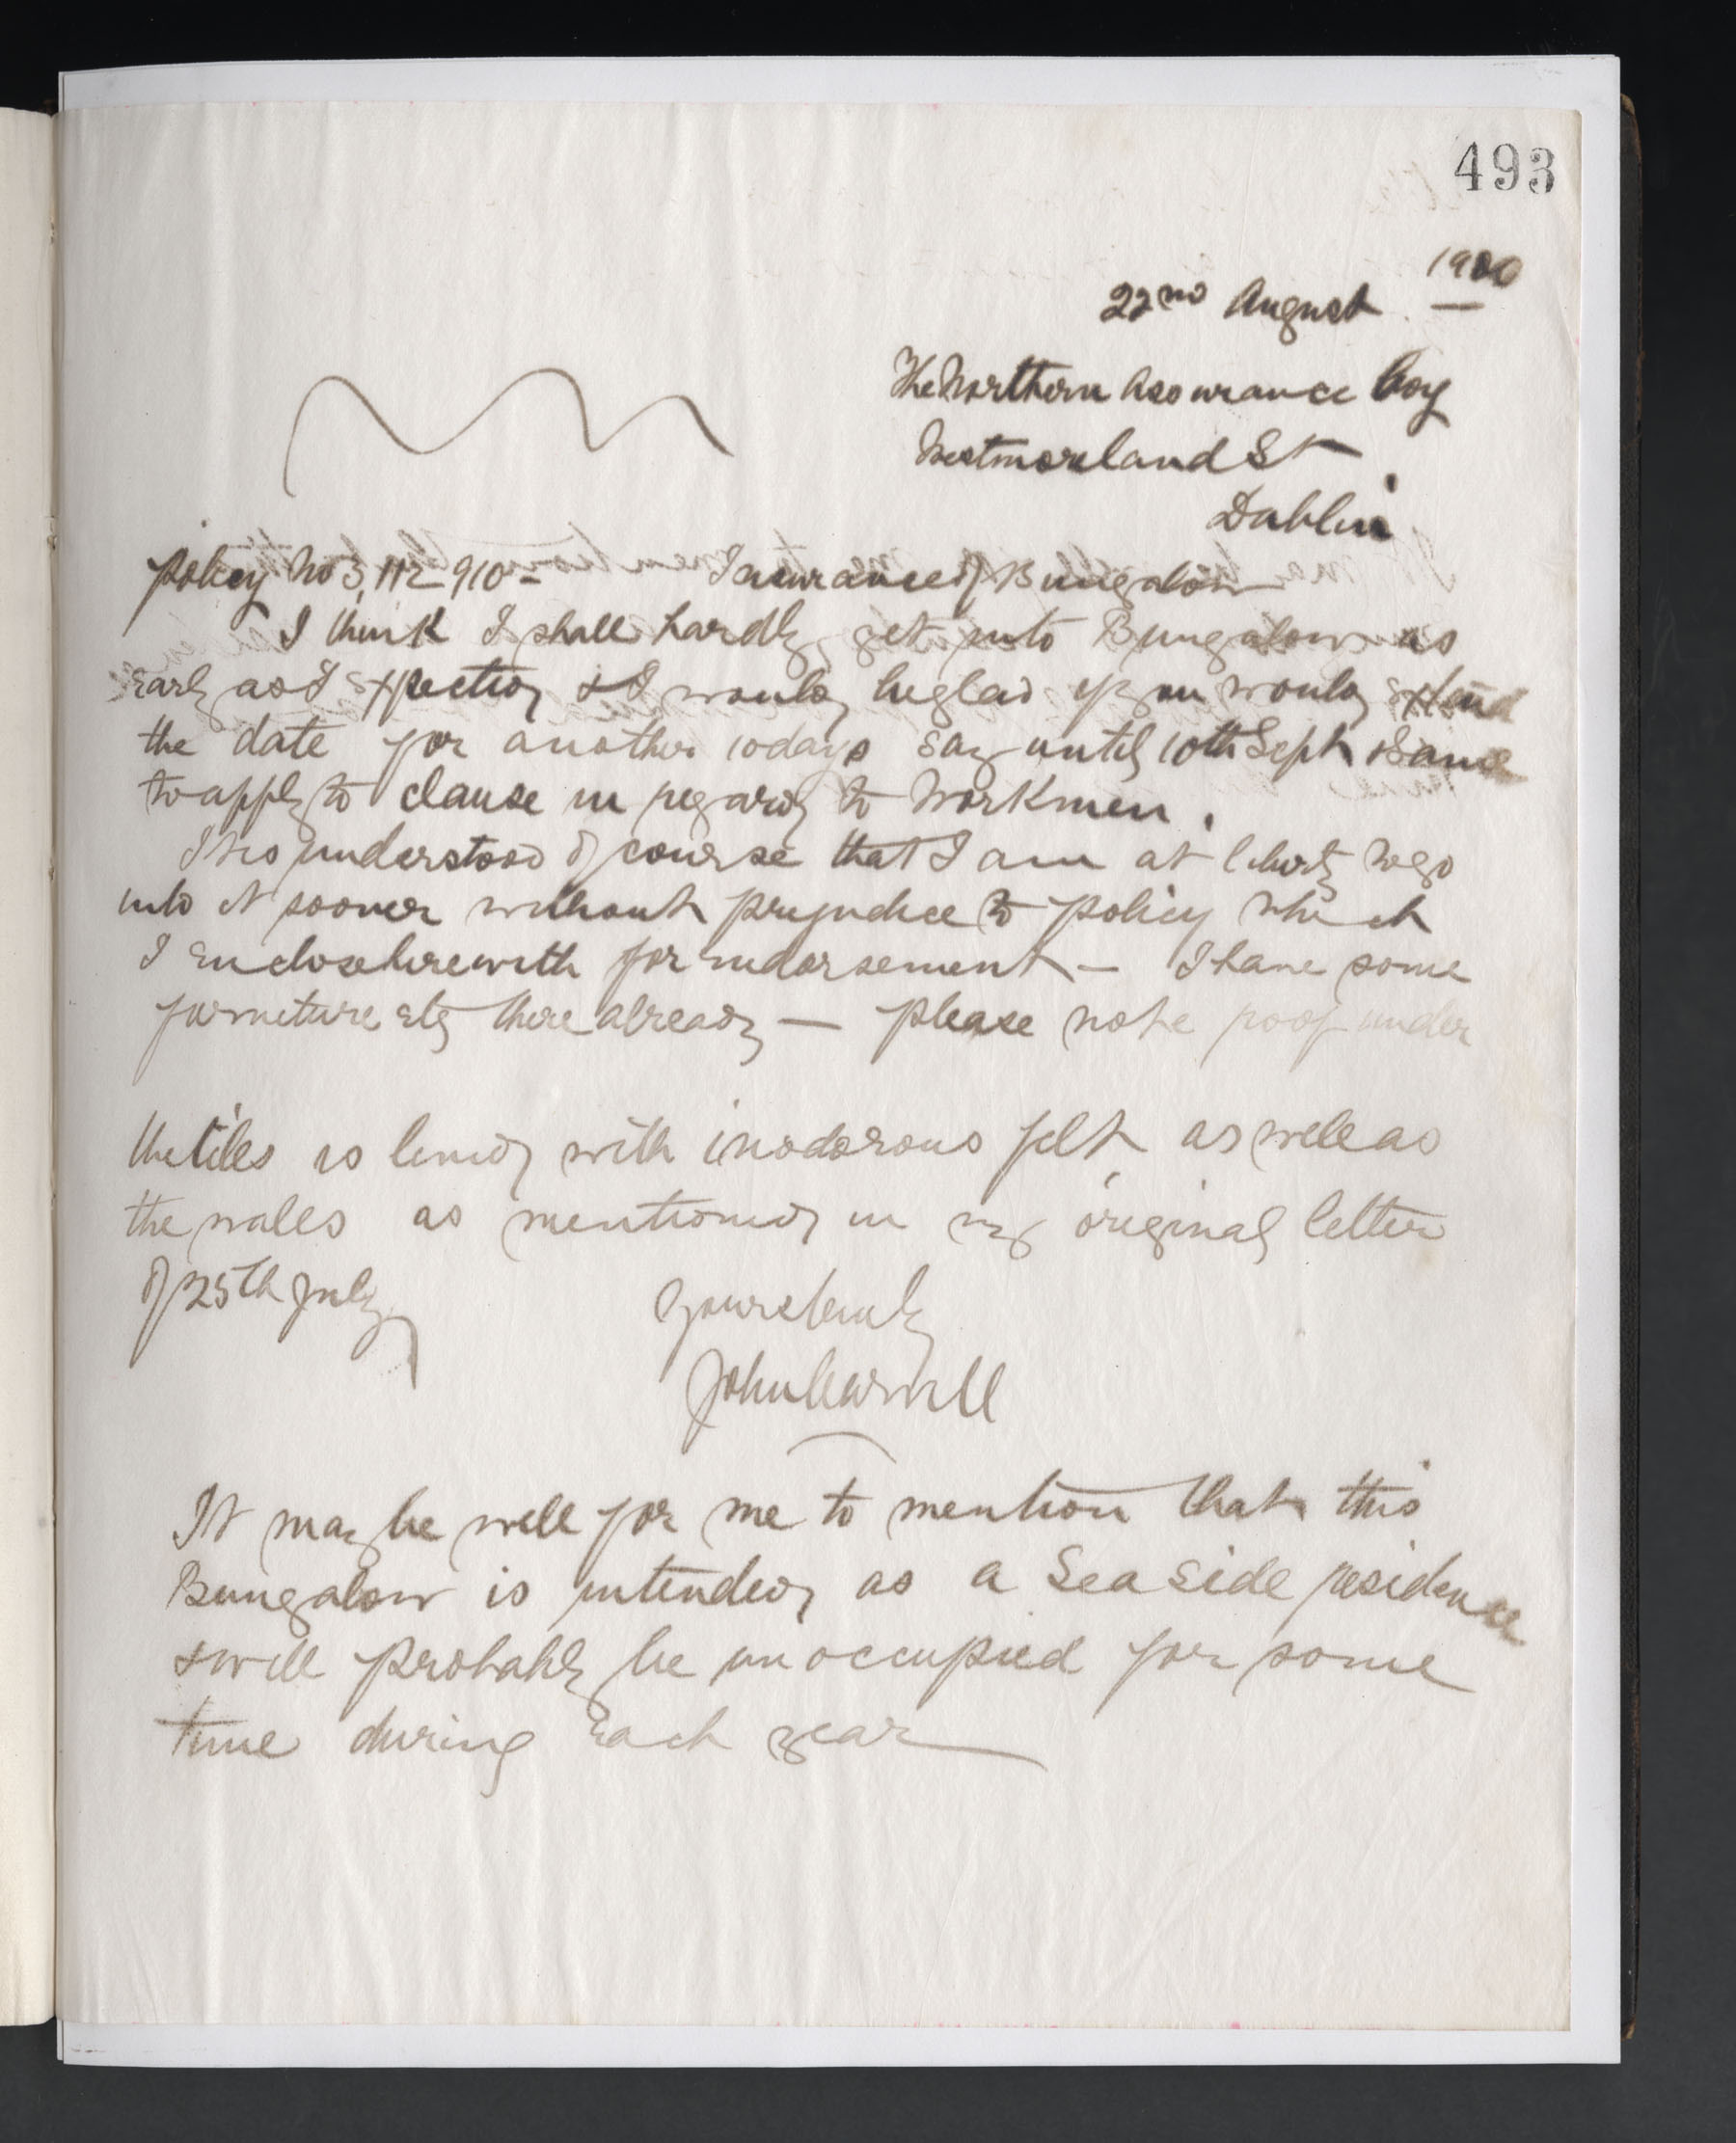 493
22nd August 1900
The Northern Assurance Coy
Westmoreland St
Dublin
Policy No 3,112910 - Insurance of Bungalow
I think I shall hardly get into Bungalow as
early as I expected & I would be glad if you would extend
the date for another 10 days say until 10th Sept & same
to apply to clause in regard to workmen.
It is understood of course that I am at liberty to go
into it sooner without prejudice to policy which
I enclose herewith for endorsement - I have some
furniture etc there already - please note roof under
the tiles is lined with inodorous felt as well as
the walls as mentioned in my original letter
of 25th July
Yours truly
John
It may be well for me to mention that this
Bungalow is intended as a Sea Side residence
& will probably be unoccupied for some
time during each year